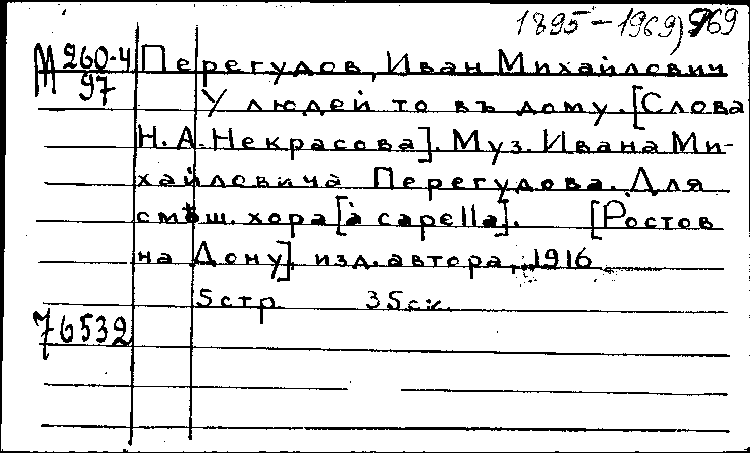 1895-1969)
М 260-4
97
Перегудов, Иван Михайлович
У людей то въ дому. [Слова
Н. А. Некрасова]. Муз. Ивана Ми-
хайловича Перегудова. Для
смѣш. хора [à capella]. [Ростов
на Дону]. изд. автора, 1916
5 стр 35 см.
76532